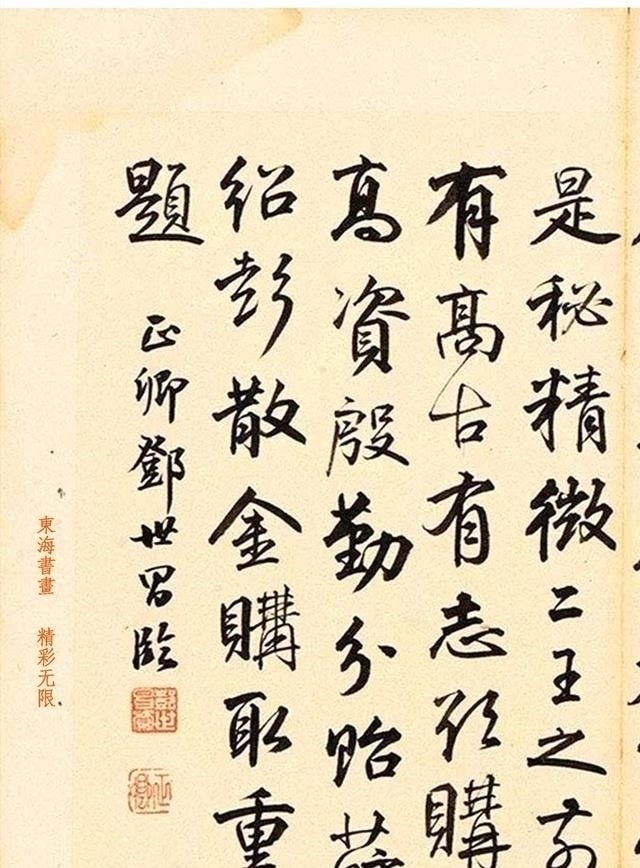 是秘精微二王之前
有高古有志欲購
高資殷勤分貽薛
紹彭散金購取重
題
正卿鄧世昌臨
正卿
東海書畫 精彩无限